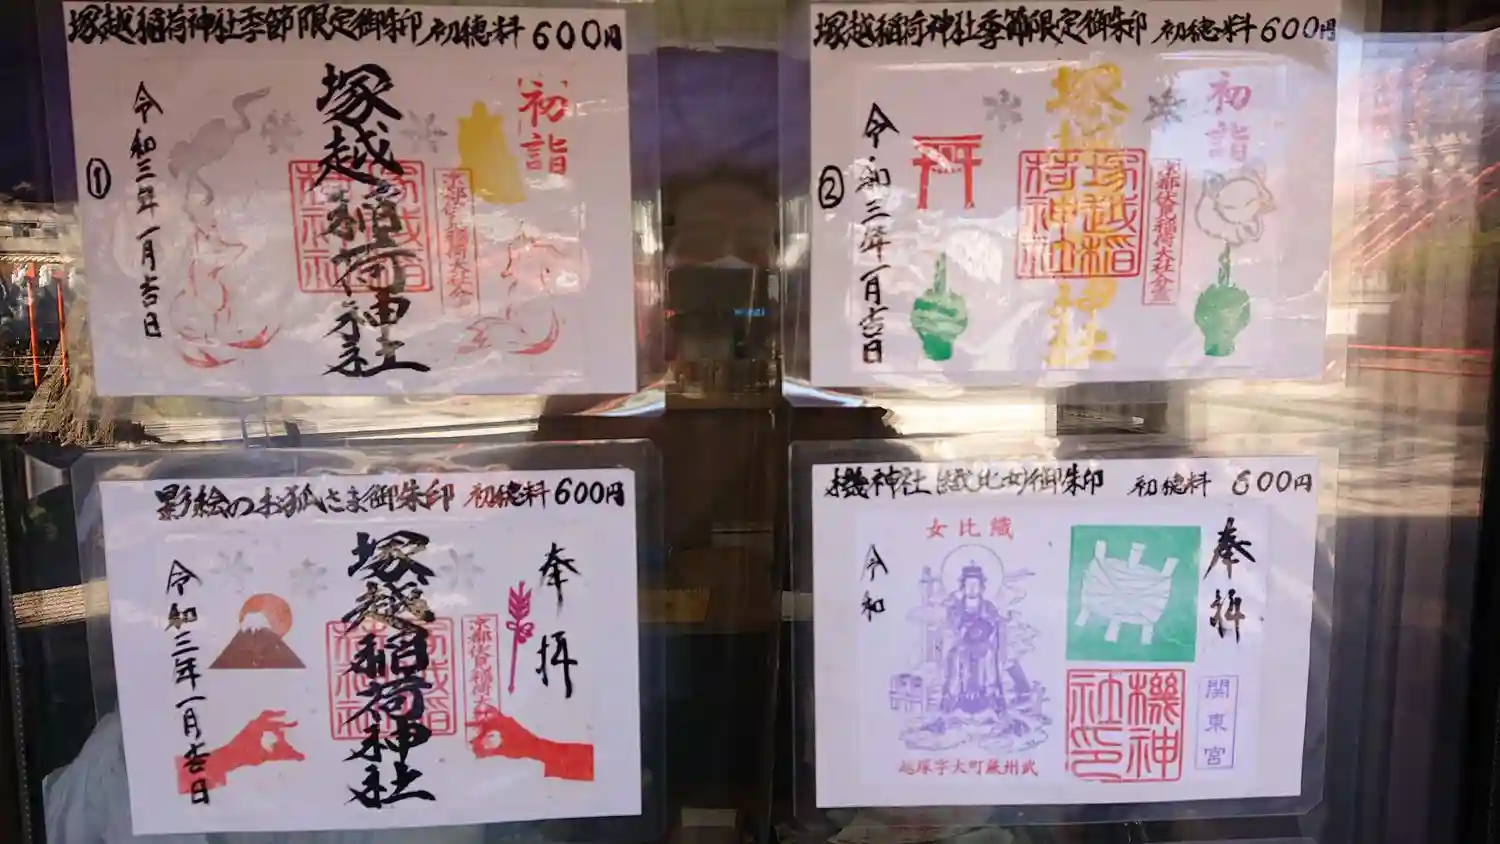 塚越稲荷神社季節限定御朱印 初穂料 600円
初詣
京都伏見稲荷大社分
塚越稲荷神社
塚越稲荷神社
令和三年一月吉日
①
塚越稲荷神社季節限定御朱印 初穂料 600円
初詣
京都伏見稲荷大社分霊
塚越稲荷神社
塚越稲荷神社
令和三年一月吉日
②
影絵のお狐さま御朱印 初穂料 600円
奉拝
京都伏見稲荷大
塚越稲荷神社
塚越稲荷神社
令和三年一月吉日
機神社(織比女)御朱印 初穂料 600円
奉拝
関東宮
機神社印
女比織
越塚字大町蕨州武
令和